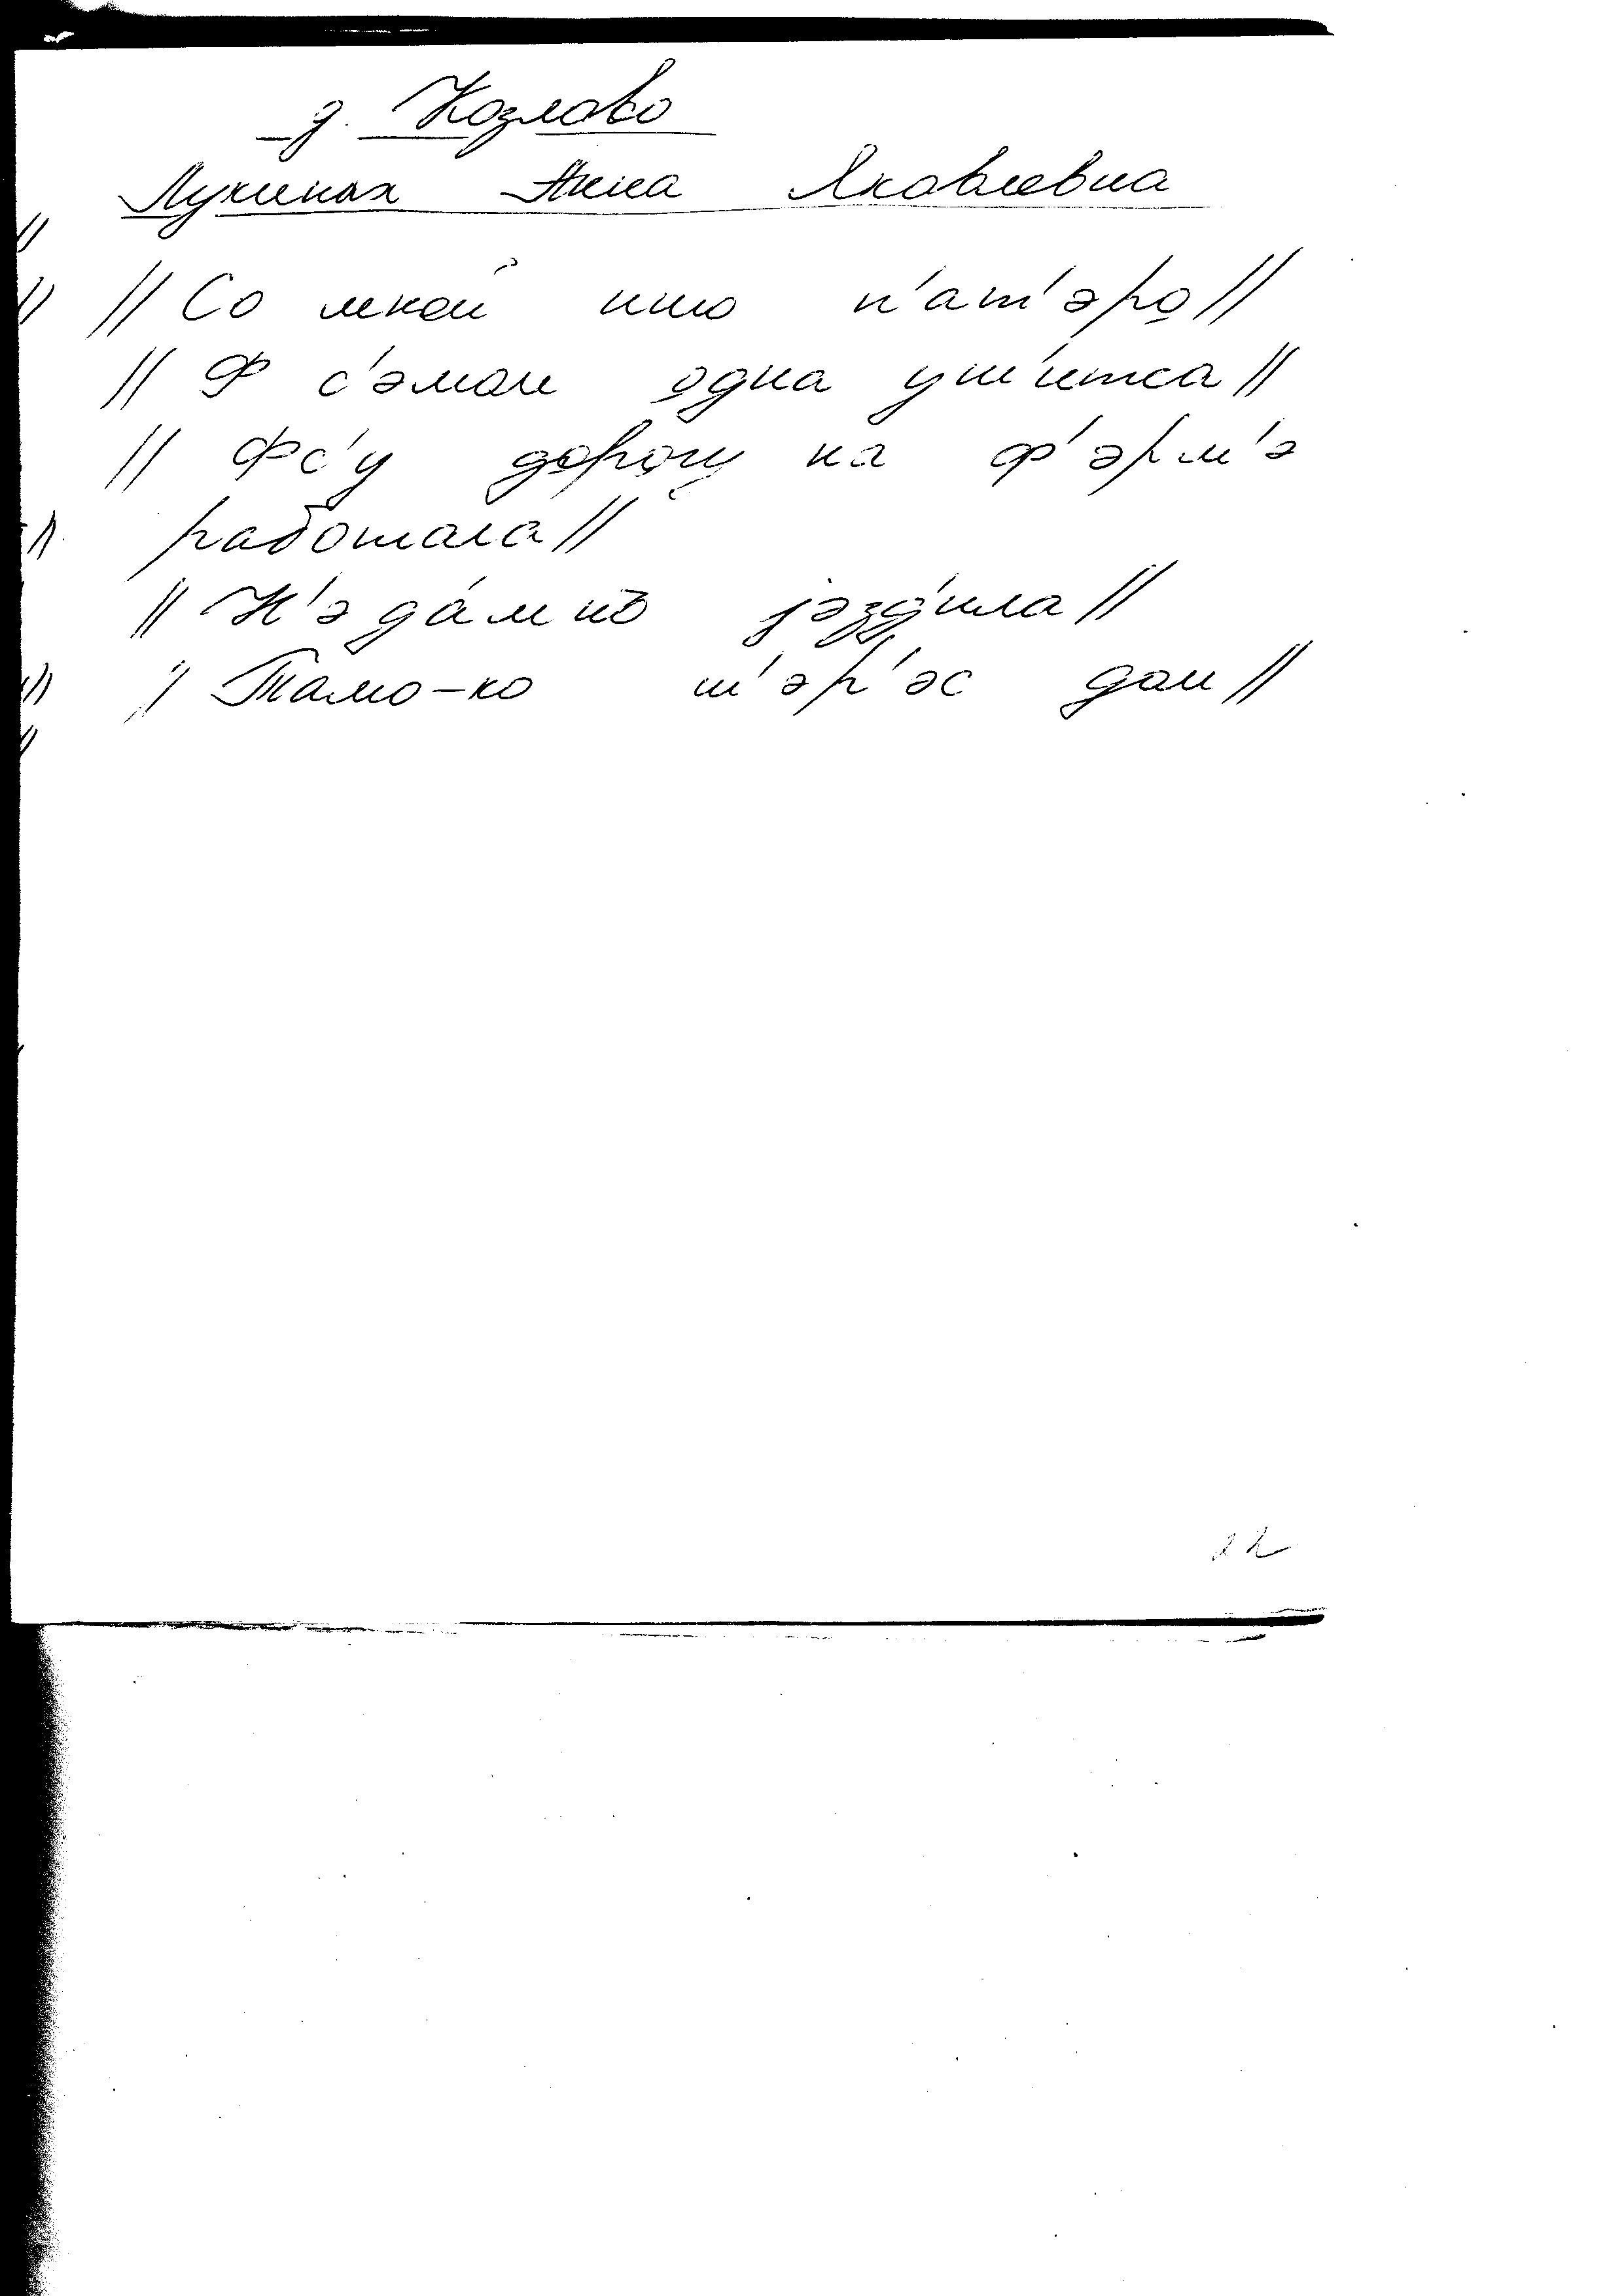 д. Козлово
Лукиных Анна Яковлевна
// Со мной ишо п'ат'эро //
// Ф с'амом одна уш'итса //
// Фс'у дорогу на ф'эрм'э
работала //
// Н'эда́мно jэзд'ила //
// Тамо-ко т'эр'эс дом //
22